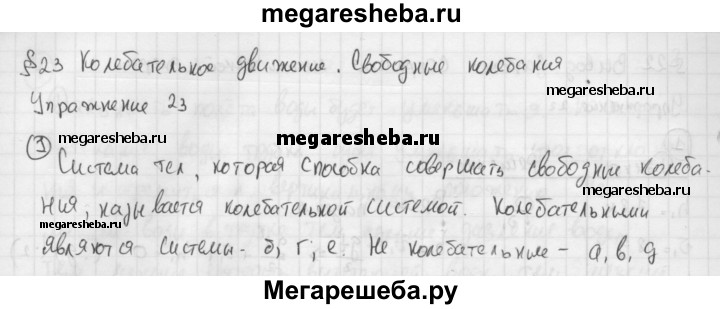 megaresheba.ru
§23 Колебательное движение. Свободные колебания
megaresheba.ru
Упражнение 23
megaresheba.ru
megaresheba.ru
1
Система тел, которая способна совершать свободные колеба-
megaresheba.ru
ния, называется колебательной системой. Колебательными
являются системы - б, г, е. Не колебательные - а, в, д
Мегарешеба.ру